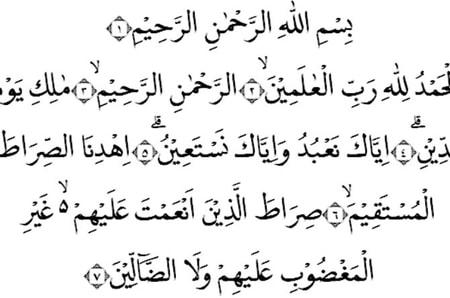 بِسْمِ اللّٰهِ الرَّحْمٰنِ الرَّحِيْمِ ۝١
لْحَمْدُ لِلّٰهِ رَبِّ الْعٰلَمِيْنَۙ ۝٢ الرَّحْمٰنِ الرَّحِيْمِۙ ۝٣ مٰلِكِ يَوْ
دِّيْنِۗ ۝٤ اِيَّاكَ نَعْبُدُ وَاِيَّاكَ نَسْتَعِيْنُۗ ۝٥ اِهْدِنَا الصِّرَاطَ
الْمُسْتَقِيْمَۙ ۝٦ صِرَاطَ الَّذِيْنَ اَنْعَمْتَ عَلَيْهِمْ ەۙ غَيْرِ
الْمَغْضُوْبِ عَلَيْهِمْ وَلَا الضَّاۤلِّيْنَ ۝٧